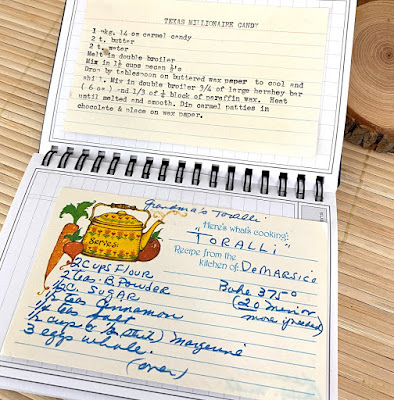 TEXAS MILLIONAIRE CANDY
1 pkg. 14 oz carmel candy
2 t. butter
2 t. water
Melt in double broiler
Mix in 1½ cups pecan ½'s
Drop by tablespoon on buttered wax paper to cool and
chill. Mix in double broiler 3/4 of large hershey bar
( 6 oz ) and 1/3 of ¼ block of paraffin wax. Heat
until melted and smooth. Dip carmel patties in
chocolate & place on wax paper.
Grandma's Toralli
Here's what's cooking:
TORALLI
Serves:
Recipe from the
kitchen of: DeMARSICO
2 CUPS FLOUR
Bake 375°
2 Teas. B. POWDER
(20 min or
½ C. SUGAR
more if needed)
½ teas Cinnamon
teas Salt
½ cup or margerine
3 eggs whole.
(over)